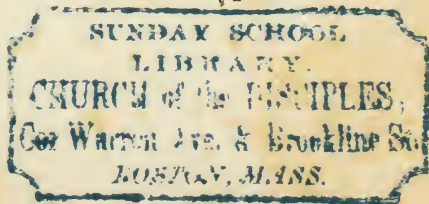 SUNDAY SCHOOL
LIBRARY.
CHURCH of the DISCIPLES,
Cor Warren Ave. & Brookline St.
BOSTON, MASS.